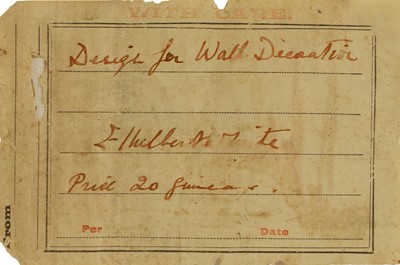 WITH CARE.
Design for Wall Decoration
Ethelbert White
Price 20 guineas.
From
Per
Date